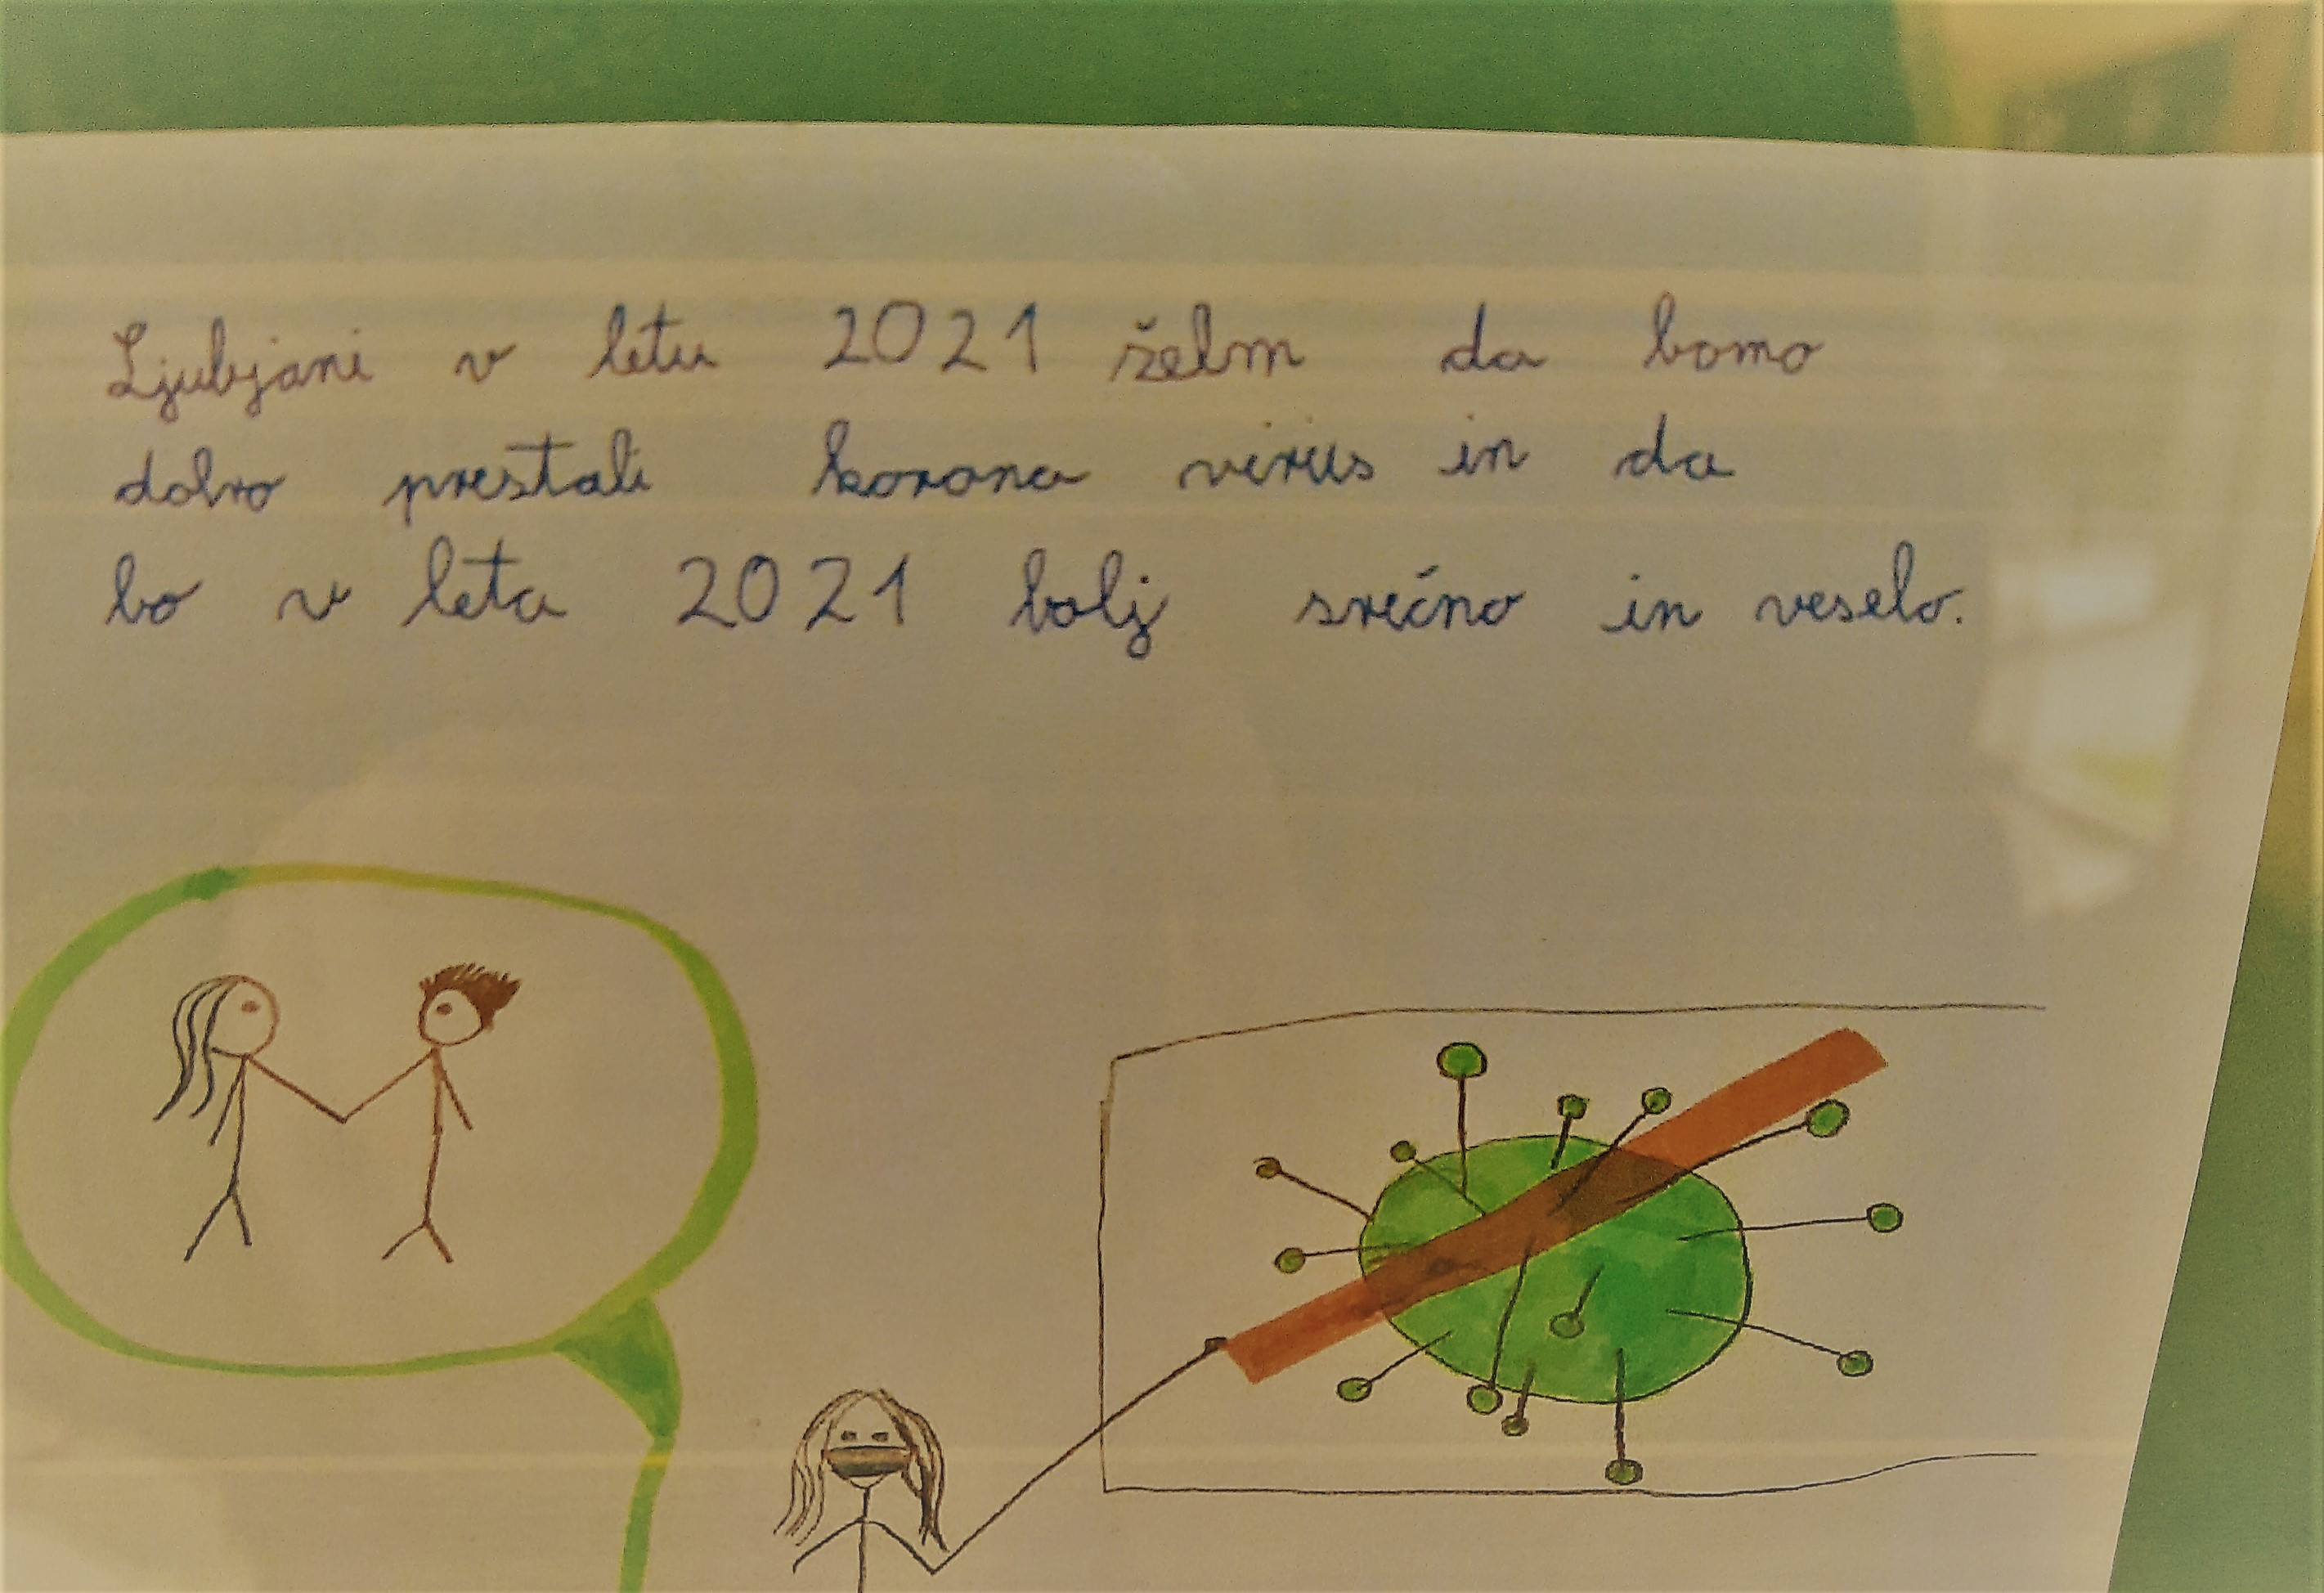 Ljubjani v letu 2021 želm da bomo
dobro prestali korona virus in da
bo v leta 2021 bolj srečno in veselo.